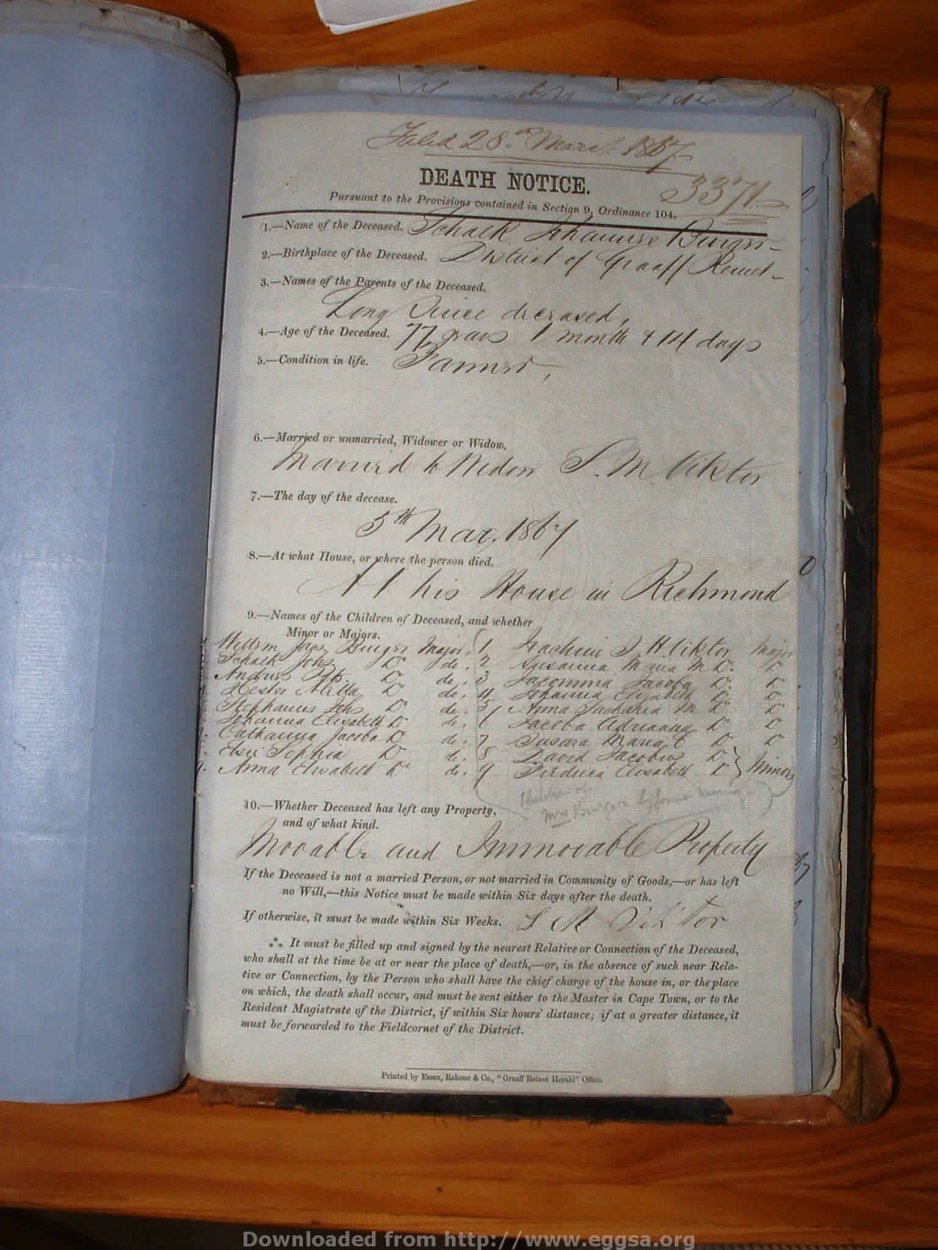 Filed 28th March 1867
3371.
DEATH NOTICE.
Pursuant to the Provisions contained in Section 9, Ordinance 104.
1.—Name of the Deceased. Schalk Burger
2.—Birthplace of the Deceased. District of Graaff Reinet
3.—Names of the Parents of the Deceased.
Long since deceased,
4.—Age of the Deceased. 77 years 1 month & 14 days
5.—Condition in life. Farmer,
6.—Married or unmarried, Widower or Widow,
Married to Widow S. M. Viktor
7.—The day of the decease.
5th Mar. 1867
8.—At what House, or where the person died.
At his House in Richmond
9.—Names of the Children of Deceased, and whether
Minor or Majors.
Willem Burger Major
1 Joachim J. H. Viktor Major
Schalk Johs Do do.
2 Susanna M Do Do
Andries Do do.
3 Jacomina Jacoba Do Do
Hester Do do.
4 Johanna Elizabeth Do Do
Stephanus Johs Do do.
5 Anna Zacharia M Do Do
Johanna Elisabeth Do do.
6 Jacoba Adriana Do Do
Catharina Jacoba Do do.
7 Maria Do Do
Elsie Sophia Do do.
8 David Jacobus Do
9. Anna Elisabeth Do do.
9 Elisabeth Do Minors
Children of
Mrs Burger by former marriage
10.—Whether Deceased has left any Property,
and of what kind.
Movable and Immovable Property
If the Deceased is not a married Person, or not married in Community of Goods,—or has left
no Will,—this Notice must be made within Six days after the death.
If otherwise, it must be made within Six Weeks. Viktor
∴ It must be filled up and signed by the nearest Relative or Connection of the Deceased,
who shall at the time be at or near the place of death,—or, in the absence of such near Rela-
tive or Connection, by the Person who shall have the chief charge of the house in, or the place
on which, the death shall occur, and must be sent either to the Master in Cape Town, or to the
Resident Magistrate of the District, if within Six hours' distance; if at a greater distance, it
must be forwarded to the Fieldcornet of the District.
Printed by Essex, Rabone & Co., "Graaff Reinet Herald" Office.
Downloaded from http://www.eggsa.org